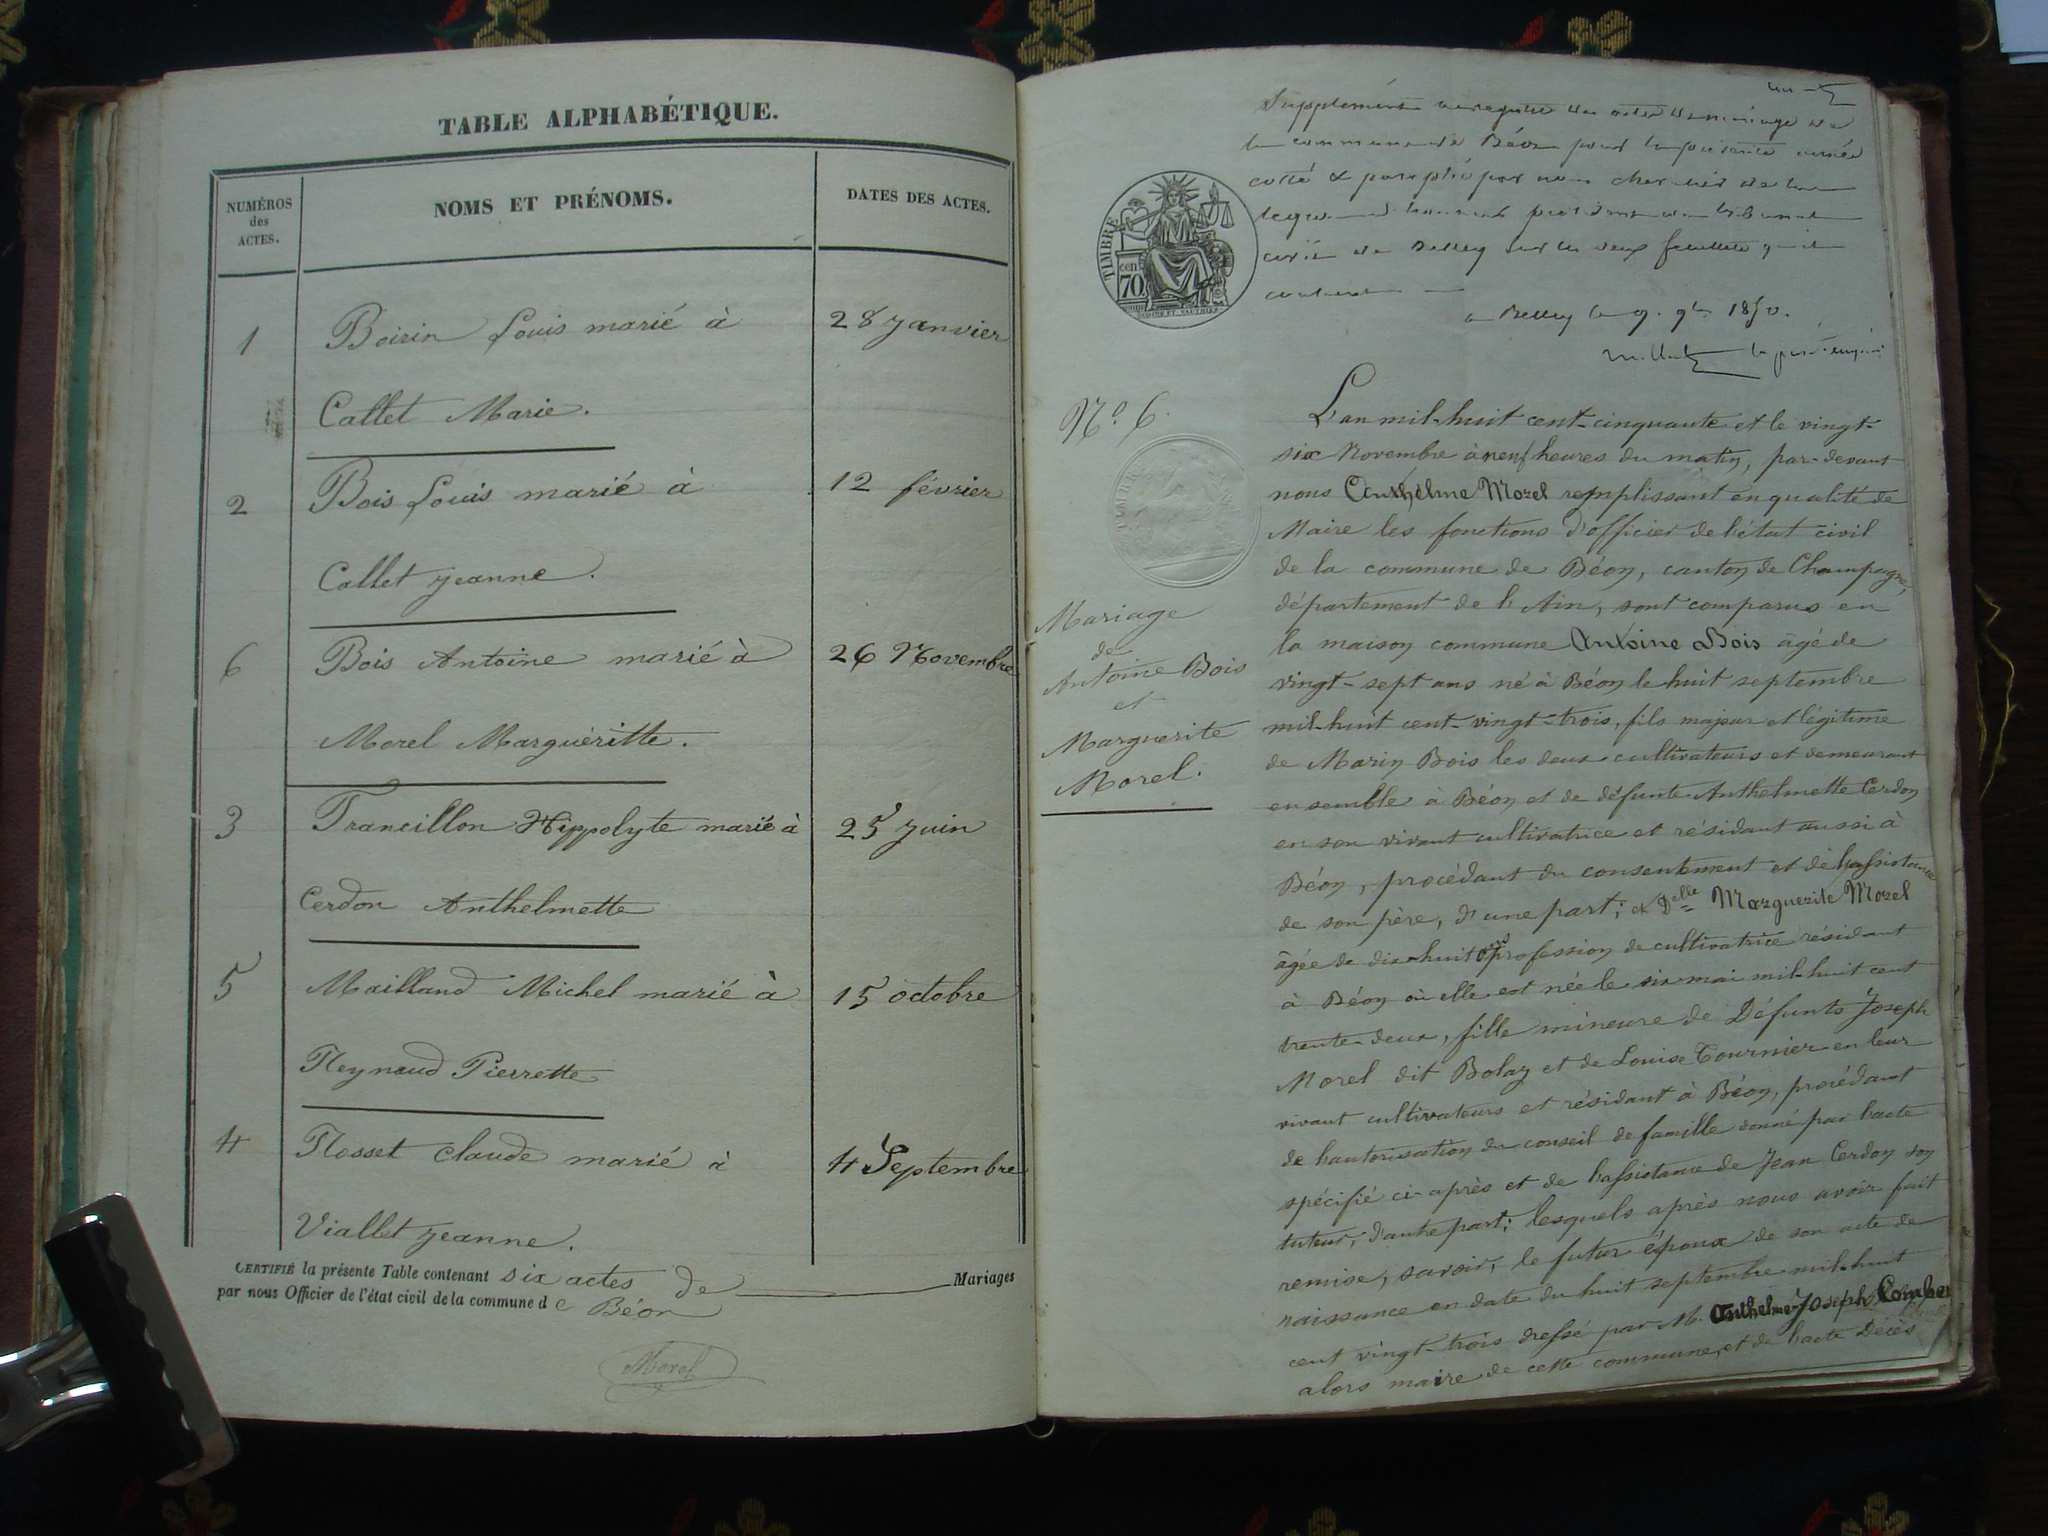 TABLE ALPHABÉTIQUE.
NUMÉROS des ACTES.
NOMS ET PRÉNOMS.
DATES DES ACTES.
1 Boirin Louis marié à 28 Janvier
Callet Marie.
2 Bois Louis marié à 12 février
Callet Jeanne.
6 Bois Antoine marié à 26 Novembre
Morel Marguéritte.
3 Francillon Hippolyte marié à 25 Juin
Cerdon Anthelmette
5 Mailland Michel marié à 15 octobre
Reynaud Pierrette
4 Rosset Claude marié à 4 Septembre
Viallet Jeanne.
CERTIFIÉ la présente Table contenant six actes de Mariages
par nous Officier de l'état civil de la commune de Béon
Morel
Supplément au registre des actes de mariage de
la commune de Béon pour la présente année
cotté & paraphé par nous chevalier de la
légion d'honneur président du tribunal
civil de Belley sur les deux feuillets qu'il
contient
a Belley le 9. 9bre 1850.
TIMBRE
cen
70
No. 6.
Mariage
de
Antoine Bois
et
Marguerite
Morel.
L'an mil-huit cent-cinquante et le vingt-
six Novembre à neuf heures du matin, par-devant
nous Anthelme Morel remplissant en qualité de
Maire les fonctions d'officier de l'état civil
de la commune de Béon, canton de Champagne,
département de l'Ain, sont comparus en
la maison commune Antoine Bois âgé de
vingt-sept ans né à Béon le huit septembre
mil-huit cent-vingt-trois, fils majeur et légitime
de Marin Bois les deux cultivateurs et demeurant
ensemble à Béon et de défunte Anthelmette Cerdon
en son vivant cultivatrice et résidant aussi à
Béon, procédant du consentement et de l'assistance
de son père, d'une part; et Delle Marguerite Morel
âgée de dix-huit ans profession de cultivatrice résidant
à Béon où elle est née le six mai mil-huit cent
trente-deux, fille mineure de Défunts Joseph
Morel dit Bolaz et de Louise Tournier en leur
vivant cultivateurs et résidant à Béon, procédant
de l'autorisation du conseil de famille donné par l'acte
spécifié ci-après et de l'assistance de Jean Cerdon son
tuteur, d'autre part; lesquels après nous avoir fait
remise, savoir, le futur époux de son acte de
naissance en date du huit septembre mil-huit
cent vingt-trois dressé par M. Anthelme-Joseph
alors maire de cette commune, et de l'acte Décès